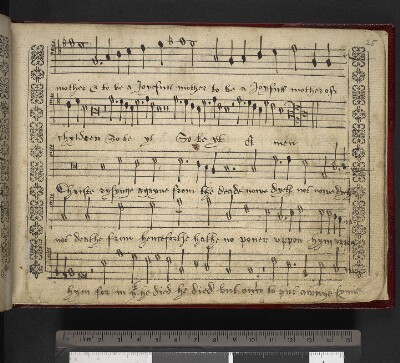 25
mother & to be a Joyefull mother to be a Joyfull mother of
chyldren So be yt So be yt A men
Christe rysynge agayne from the deade nowe dyeth not nowe dyeth
not deathe from hencforthe hathe no power uppon hym uppon
hym for in yt he died he died but once to put awaye synne